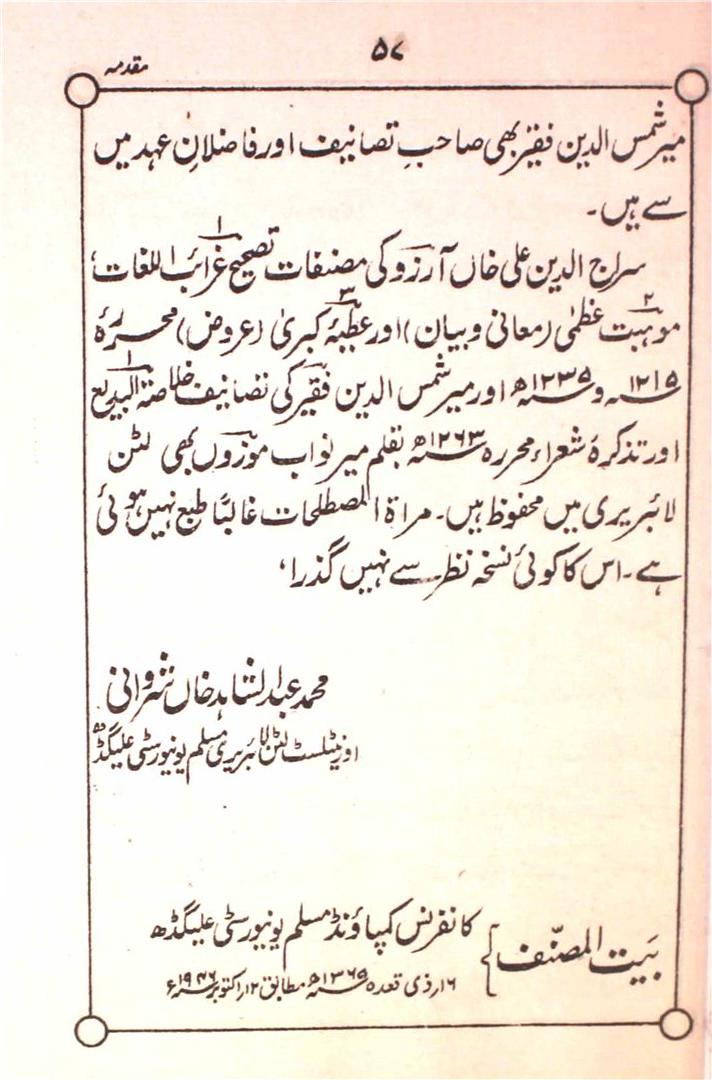 ۵۷
مقدمہ
میر شمس الدین فقیر بھی صاحبِ تصانیف اور فاضلانِ عہد میں
سے ہیں۔
سراج الدین علی خاں آرزو کی مصنفات ۱ تصحیح غرائب اللغات،
۲ موہبت عظمٰی (معانی و بیان) اور ۳ عطیۂ کبریٰ (عروض) محررۂ
۱۲۱۵ھ و ۱۲۳۵ھ اور میر شمس الدین فقیر کی تصانیف ۱ خلاصۃ البدیع
اور تذکرۂ شعراء محررہ ۱۲۶۳ھ بقلم میر نواب موزوں بھی لٹن
لائبریری میں محفوظ ہیں۔ مراۃ المصطلحات غالبًا طبع نہیں ہوئی
ہے۔ اس کا کوئی نسخہ نظر سے نہیں گذرا،
محمد عبد الشاہد خاں شروانی
اورینٹلسٹ لٹن لائبریری مسلم یونیورسٹی علیگڈھ
بیت المصنّف { کانفرنس کمپاؤنڈ مسلم یونیورسٹی علیگڈھ
۱۶ ذی قعدہ ۱۳۶۵ھ مطابق ۱۲ اکتوبر ۱۹۴۶ء